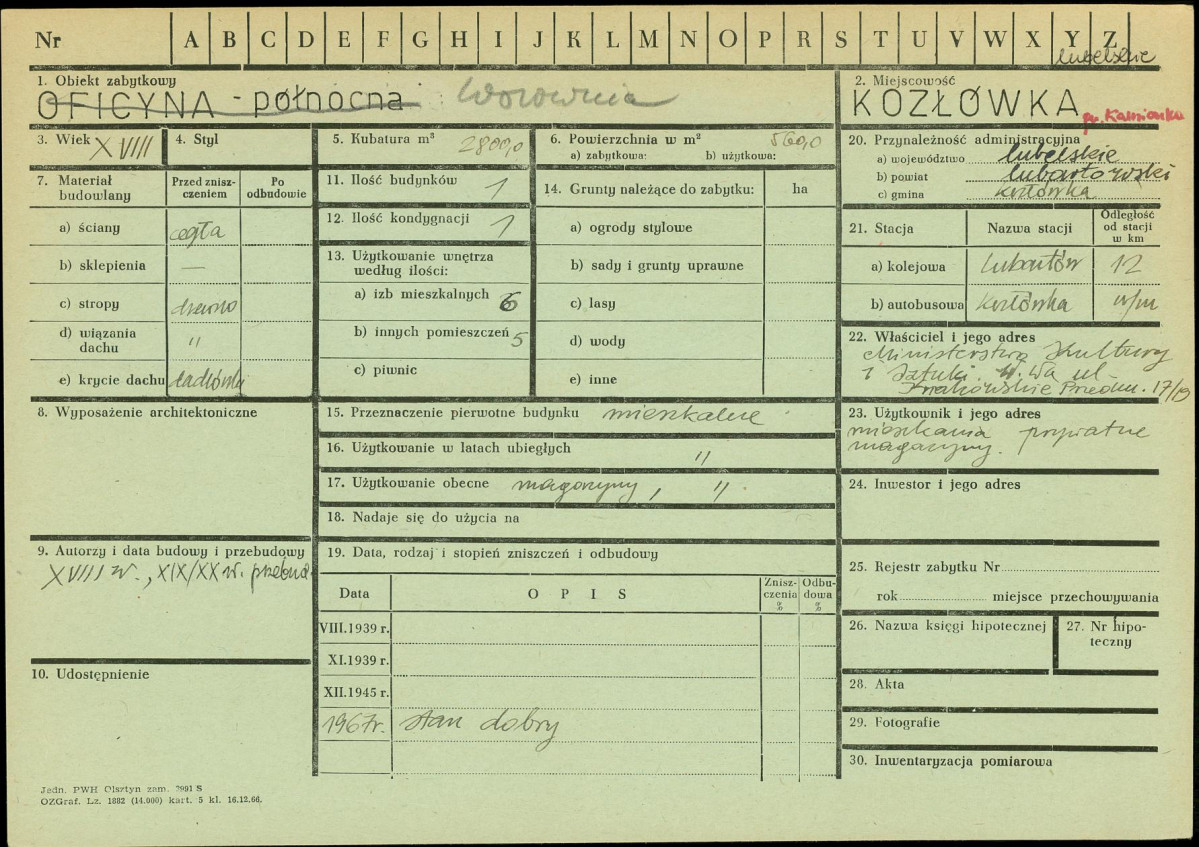 Nr A B C D E F G H I J K L M N O P R S T U V W X Y Z
lubelskie
1. Obiekt zabytkowy
OFICYNA - północna Wozownia
2. Miejscowość
KOZŁÓWKA gr. Kamionka
3. Wiek XVIII
4. Styl
5. Kubatura m³ 2800,0
6. Powierzchnia w m² 560,0
a) zabytkowa: b) użytkowa:
20. Przynależność administracyjna
a) województwo lubelskie
b) powiat lubartowski
c) gmina Kozłówka
7. Materiał budowlany
Przed zniszczeniem
Po odbudowie
a) ściany cegła
b) sklepienia —
c) stropy drewno
d) wiązania dachu "
e) krycie dachu
11. Ilość budynków 1
12. Ilość kondygnacji 1
13. Użytkowanie wnętrza według ilości:
a) izb mieszkalnych 6
b) innych pomieszczeń 5
c) piwnic
14. Grunty należące do zabytku: ha
a) ogrody stylowe
b) sady i grunty uprawne
c) lasy
d) wody
e) inne
21. Stacja
Nazwa stacji
Odległość od stacji w km
a) kolejowa Lubartów 12
b) autobusowa Kozłówka w/m
22. Właściciel i jego adres
Ministerstwo Kultury
i Sztuki. W.Wa ul.
Krakowskie Przedm. 17/19
8. Wyposażenie architektoniczne
15. Przeznaczenie pierwotne budynku mieszkalne
16. Użytkowanie w latach ubiegłych "
17. Użytkowanie obecne magazyny, ".
18. Nadaje się do użycia na
23. Użytkownik i jego adres
mieszkania prywatne
magazyny.
24. Inwestor i jego adres
9. Autorzy i data budowy i przebudowy
XVIII w., XIX/XX w. przebud.
19. Data, rodzaj i stopień zniszczeń i odbudowy
Data
OPIS
Zniszczenia %
Odbudowa %
VIII.1939 r.
XI.1939 r.
XII.1945 r.
1967r. stan dobry
25. Rejestr zabytku Nr
rok miejsce przechowywania
26. Nazwa księgi hipotecznej
27. Nr hipoteczny
10. Udostępnienie
28. Akta
29. Fotografie
30. Inwentaryzacja pomiarowa
Jedn. PWH Olsztyn zam. 2991 S
OZGraf. Lz. 1882 (14.000) kart. 5 kl. 16.12.66.